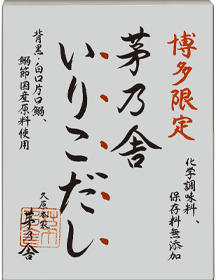 博多限定
茅乃舎
いりこだし
背黒・白口片口鰯、
鰯節国産原料使用
化学調味料、
保存料無添加
久原本家
茅乃舎